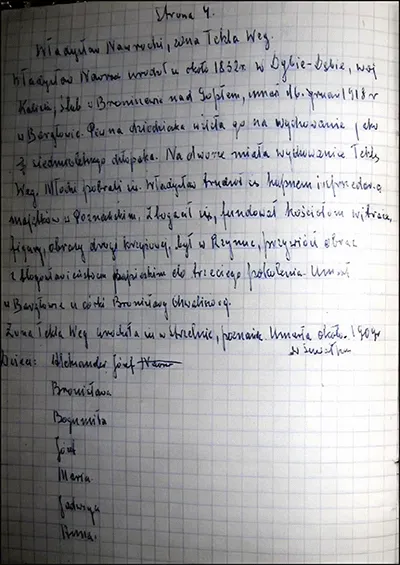 Strona 4.
Władysław Nawrocki, żona Tekla Weg.
Władysław Nawroc urodził się około 1832r. w Dąbie-Dąbie, woj
Kalisz, ślub w Bronisławie nad Gopłem, zmarł 6 1918 r
w Barłogach. Pewna dziedziczka wzięła go na wychowanie, jako
siedmioletniego chłopaka. Na dworze miała wychowanicę Teklę
Weg. Młodzi pobrali się. Władysław trudnił się kupnem i sprzedażą
majątków w Poznańskim. Zbogacił się, fundował kościołom witraże,
figury, obrazy drogi krzyżowej, był w Rzymie, przywiózł obraz
z błogosławieństwem papieskim do trzeciego pokolenia. Umarł
u córki Bronisławy
Żona Tekla Weg urodziła się w Strzelnie, poznańskie. Umarła około 1909r
Dzieci: Aleksander Józef
Bronisława
Bogumiła
Józef
Maria
Jadwiga
Anna.